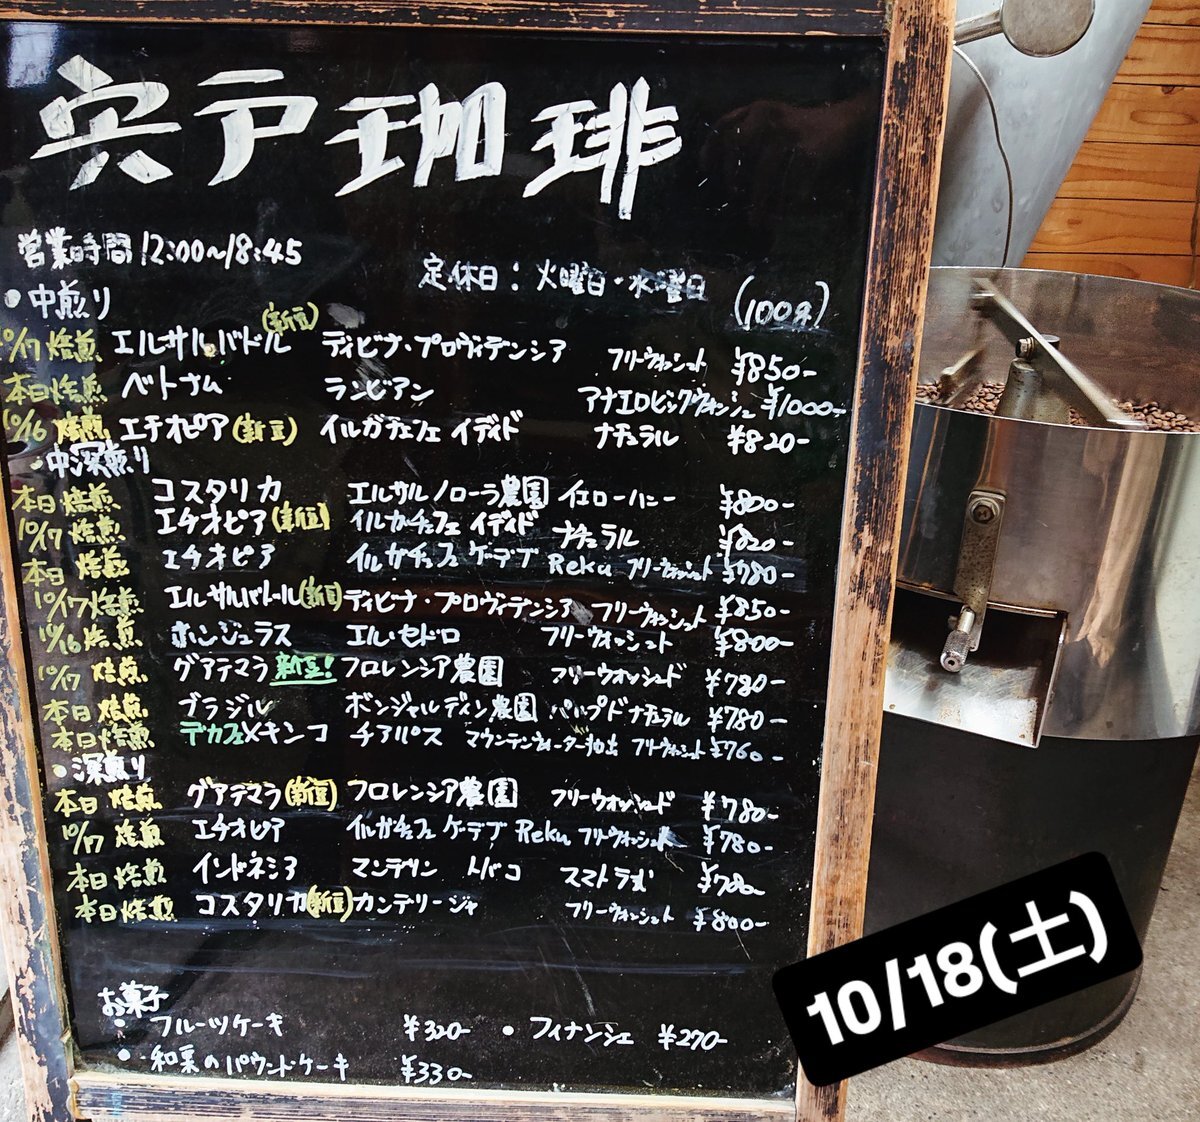 宍戸珈琲
営業時間 12:00~18:45
定休日：火曜日・水曜日 (100g)
●中煎り
10/17 焙煎 エルサルバドル (新豆) ディビナ・プロヴィデンシア フリーウォッシュト ¥850-
本日焙煎 ベトナム ランビアン アナエロビックウォッシュ ¥1000-
10/16 焙煎 エチオピア (新豆) イルガチェフェ イディド ナチュラル ¥820-
●中深煎り
本日焙煎 コスタリカ エルサルノローラ農園 イエローハニー ¥800-
10/17 焙煎 エチオピア (新豆) イルガチェフェ イディド ナチュラル ¥820-
本日 焙煎 エチオピア イルガチェフェ ゲーデブ Reku フリーウォッシュト ¥780-
10/17 焙煎 エルサルバドル (新豆) ディビナ・プロヴィデンシア フリーウォッシュト ¥850-
10/16 焙煎 ホンジュラス エル・セドロ フリーウォッシュト ¥800-
10/17 焙煎 グアテマラ 新豆! フロレンシア農園 フリーウォッシュド ¥780-
本日 焙煎 ブラジル ボンジャルディン農園 パルプドナチュラル ¥780-
本日焙煎 デカフェメキシコ チアパス マウンテンウォーター抽出 フリーウォッシュト ¥760-
●深煎り
本日 焙煎 グアテマラ (新豆) フロレンシア農園 フリーウォッシュド ¥780-
10/17 焙煎 エチオピア イルガチェフェ ゲーデブ Reku フリーウォッシュト ¥780-
本日 焙煎 インドネシア マンデリン トバコ スマトラ式 ¥780-
本日 焙煎 コスタリカ (新豆) カンデリージャ フリーウォッシュト ¥800-
お菓子
●フルーツケーキ ¥320- ●フィナンシェ ¥270-
●和栗のパウンドケーキ ¥330-
10/18(土)